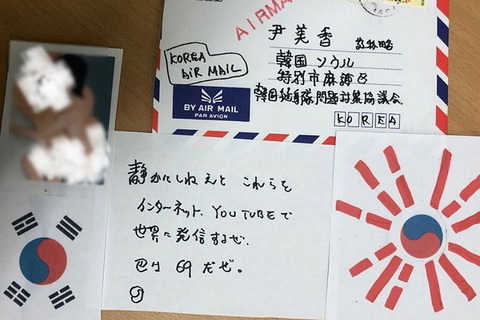 AIRMAIL
尹美香 敬称略
韓国 ソウル
特別市麻浦区
韓国挺身隊問題対策協議会
KOREA
KOREA
AIR MAIL
BY AIR MAIL
PAR AVION
静かにしねえと これらを
インターネット、YOUTUBEで
世界に発信するぜ。
巴は 69 だぜ。